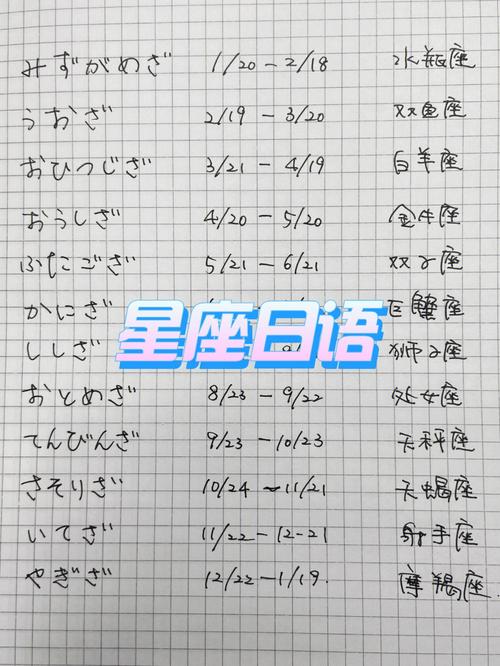 みずがめざ 1/20 - 2/18 水瓶座
うおざ 2/19 - 3/20 双鱼座
おひつじざ 3/21 - 4/19 白羊座
おうしざ 4/20 - 5/20 金牛座
ふたござ 5/21 - 6/21 双子座
かにざ 巨蟹座
星座日语
ししざ 狮子座
おとめざ 8/23 - 9/22 处女座
てんびんざ 9/23 - 10/23 天秤座
さそりざ 10/24 ~ 11/21 天蝎座
いてざ 11/22 - 12-21 射手座
やぎざ 12/22 - 1/19. 摩羯座.